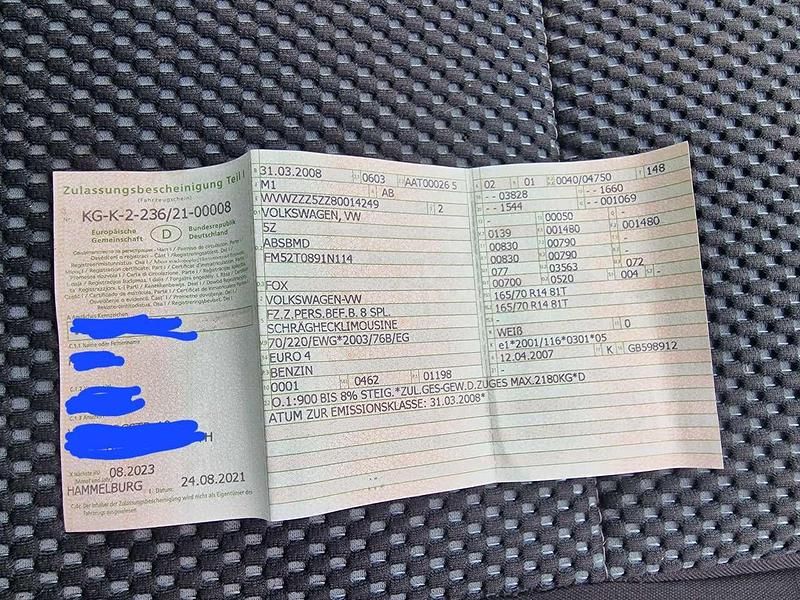 Zulassungsbescheinigung Teil I
(Fahrzeugschein)
KG-K-2-236/21-00008
Europäische Gemeinschaft
D
Bundesrepublik Deutschland
C.1.1 Name oder Firmenname
H
08.2023
HAMMELBURG
Datum:
24.08.2021
C.4c Der Inhaber der Zulassungsbescheinigung wird nicht als Eigentümer des Fahrzeugs ausgewiesen.
31.03.2008 0603 AAT00026 5
M1 AB
WVWZZZ5ZZ80014249 2
VOLKSWAGEN, VW
5Z
ABSBMD
FM52T0891N114
FOX
VOLKSWAGEN-VW
FZ.Z.PERS.BEF.B. 8 SPL.
SCHRÄGHECKLIMOUSINE
70/220/EWG*2003/76B/EG
EURO 4
BENZIN
0001 0462 01198
O.1:900 BIS 8% STEIG.*ZUL.GES-GEW.D.ZUGES MAX.2180KG*D
ATUM ZUR EMISSIONSKLASSE: 31.03.2008*
02 01 0040/04750 148
- - 03828 - - 1660
- - 1544 - - 001069
- 00050 -
0139 001480 001480
00830 00790 -
00830 00790 -
077 03563 072
00700 0520 004 -
165/70 R14 81T
165/70 R14 81T
-
WEIß 0
e1*2001/116*0301*05
12.04.2007 K GB598912
-